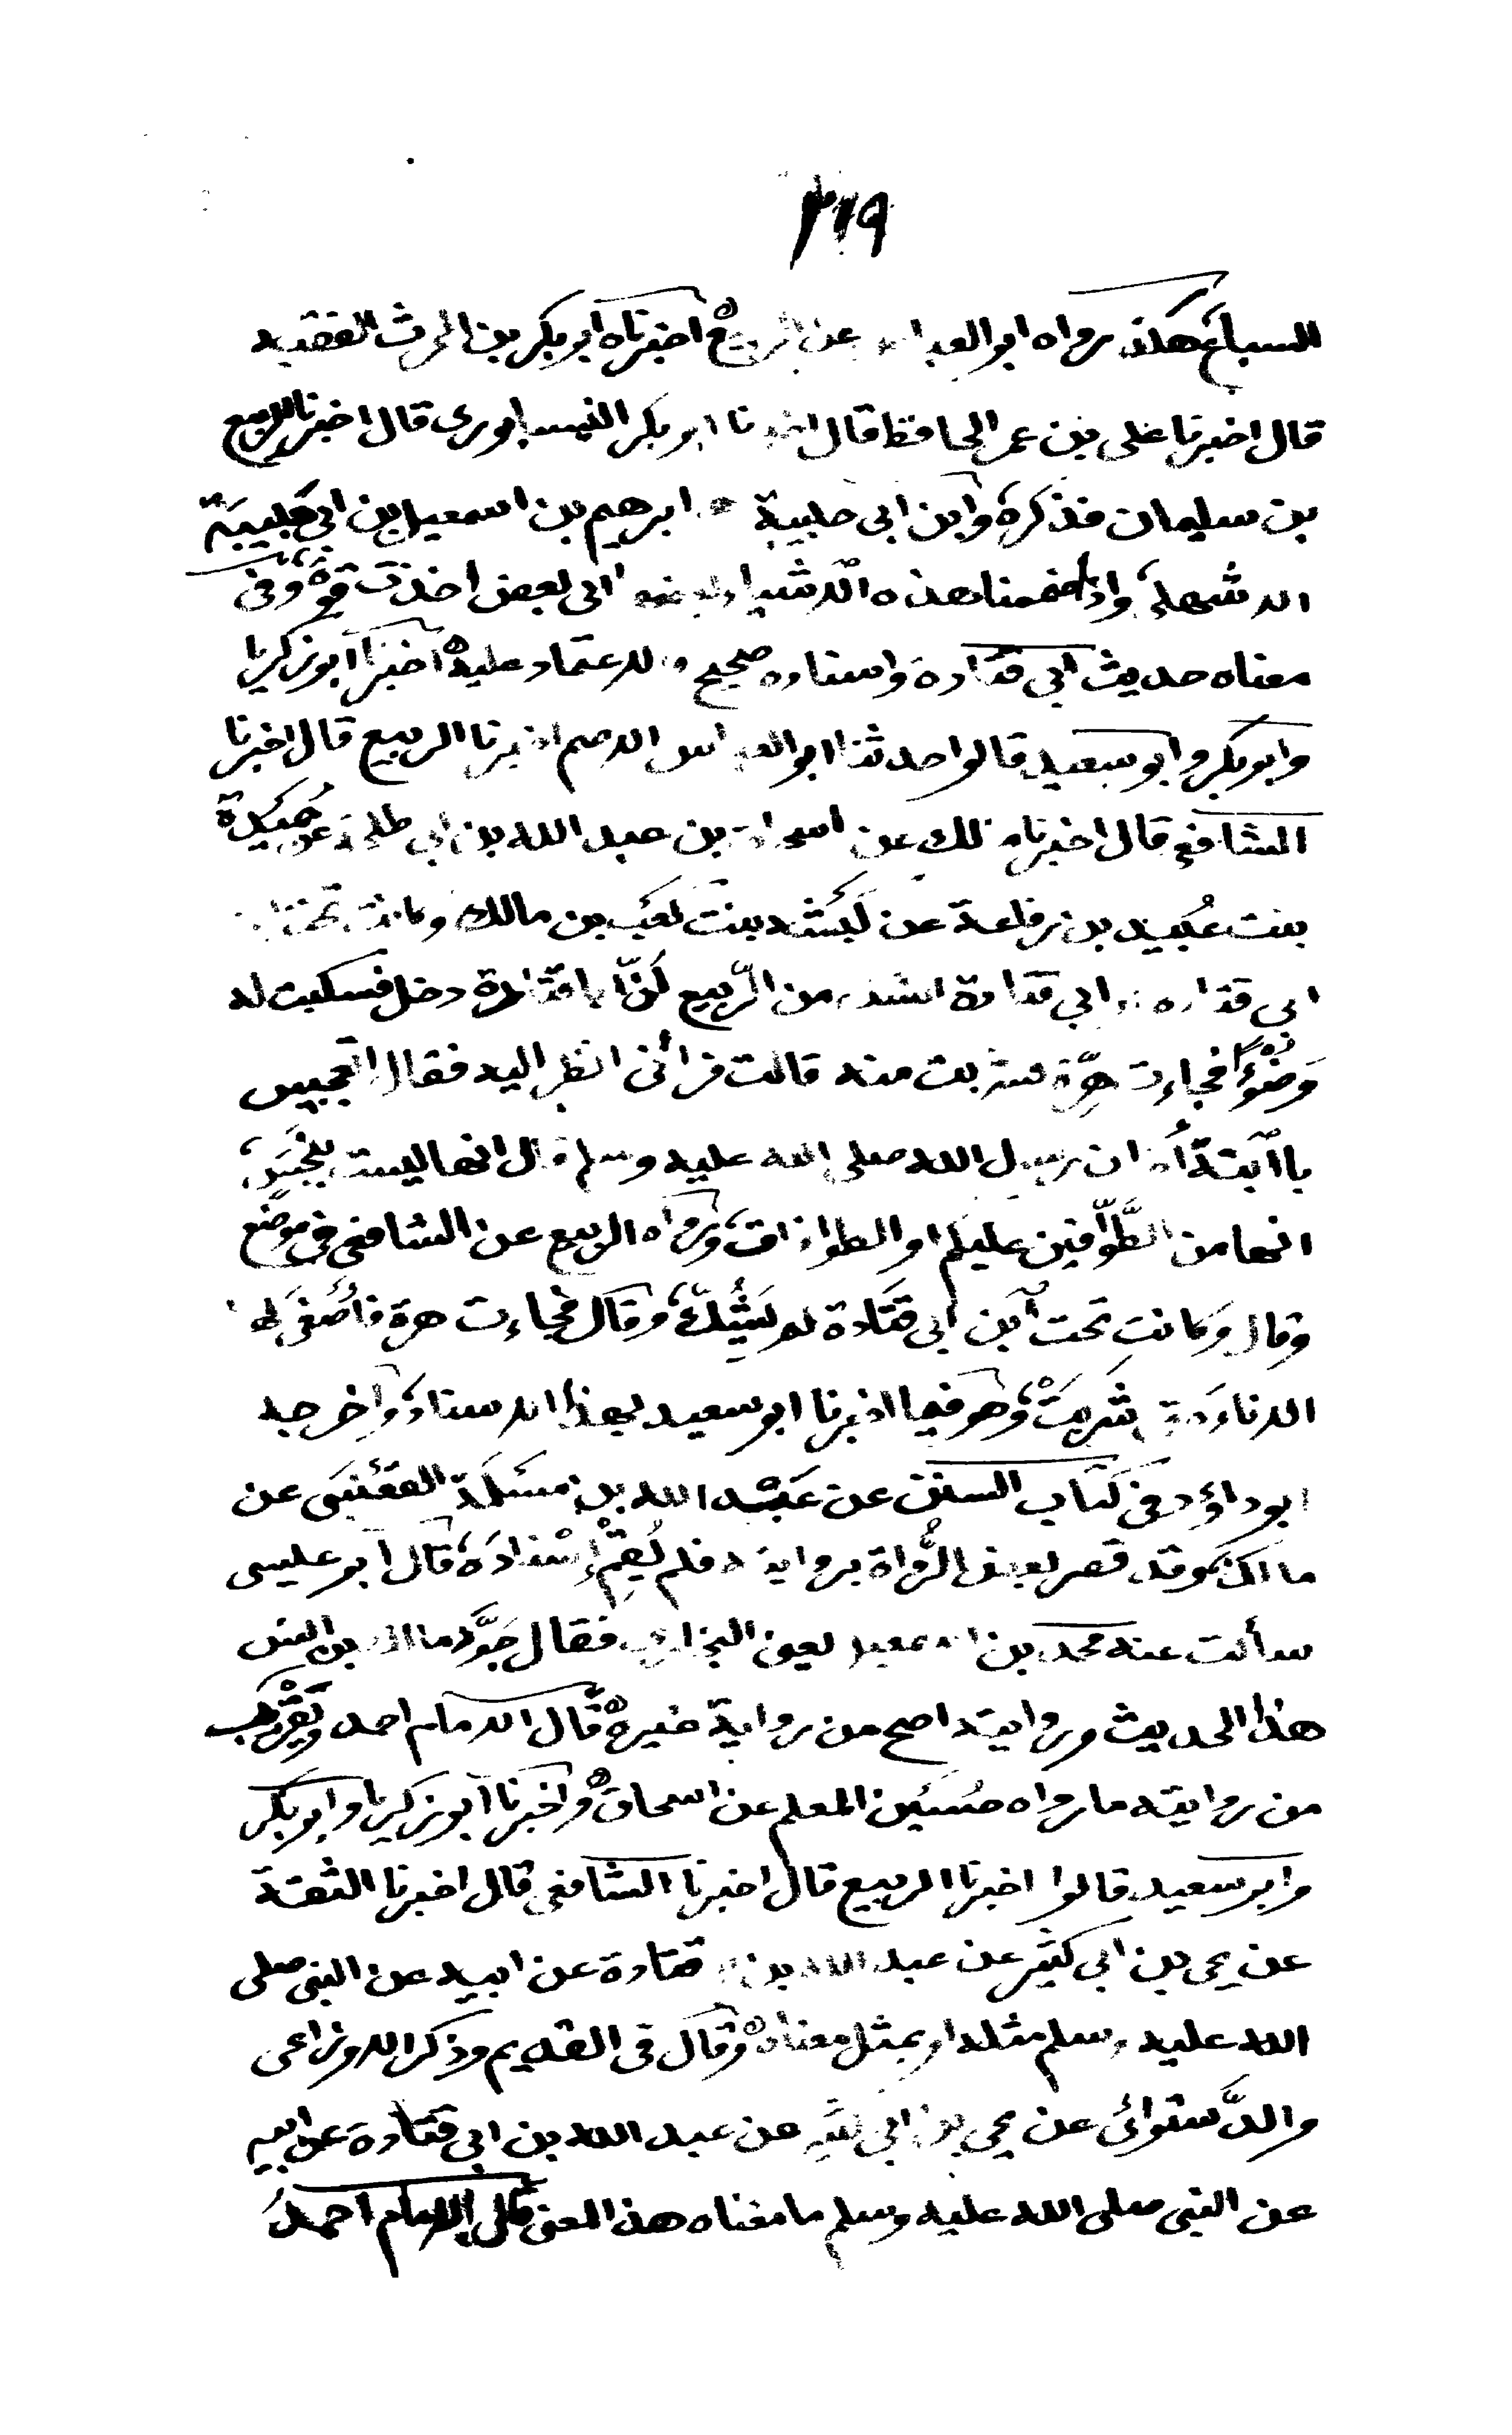 ٣١٩
السباع هكذا رواه ابو العباس عن الربيع اخبرناه ابو بكر بن الحرث الفقيه
قال اخبرنا على بن عمر الحافظ قال اخبرنا ابو بكر النيسابورى قال اخبرنا الربيع
بن سليمان فذكره وابن ابى حبيبة ابرهيم بن اسمعيل بن ابي حبيبة
الاشهلي واذا ضممنا هذه الاسانيد بعضها الى بعض اخذت قوة وفي
معناه حديث ابي قتادة واسناده صحيح والاعتماد عليه اخبرنا ابو زكريا
وابو بكر وابو سعيد قالوا حدثنا ابو العباس الاصم اخبرنا الربيع قال اخبرنا
الشافعي قال اخبرنا مالك عن اسحاق بن عبد الله بن ابي طلحة عن حميدة
بنت عبيد بن رفاعة عن كبشه بنت كعب بن مالك وكانت تحت ابن
ابى قتاده او ابي قتادة الشك من الربيع ان ابا قتادة دخل فسكبت له
وضوءا فجاءت هرة فشربت منه قالت فرآني انظر اليه فقال اتعجبين
يا ابنة اخي ان رسول الله صلى الله عليه وسلم قال انها ليست بنجس
انها من الطوافين عليكم او الطوافات ورواه الربيع عن الشافعى في موضع
وقال وكانت تحت ابن ابي قتادة لم يشك وقال فجاءت هرة فأصغى لها
الاناء حتى شربت وهو فيما اخبرنا ابو سعيد بهذا الاسناد واخرجه
ابو داؤد في كتاب السنن عن عبد الله بن مسلمة القعنبى عن
مالك وقد قصر بعض الرواة بروايته فلم يقم إسناده قال ابو عيسى
سألت عنه محمد بن اسمعيل يعني البخاري فقال جود مالك بن انس
هذا الحديث وروايته اصح من رواية غيره قال الامام احمد
من روايته ما رواه حسين المعلم عن اسحاق واخبرنا ابو زكريا وابو بكر
وابو سعيد قالوا اخبرنا الربيع قال اخبرنا الشافعى قال اخبرنا الثقة
عن يحيى بن ابي كثير عن عبد الله بن قتادة عن ابيه عن النبى صلى
الله عليه وسلم مثله او بمثل معناه وقال فى القديم وذكر الاوزاعى
والدستوائى عن يحيى بن ابي كثير عن عبد الله بن ابي قتادة عن ابيه
عن النبى صلى الله عليه وسلم ما معناه هذا المعنى قال الامام احمد